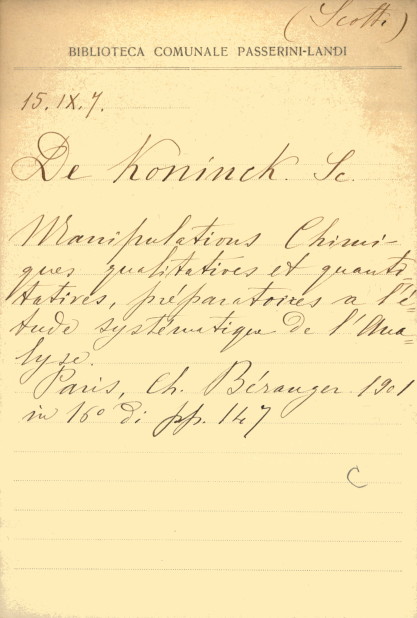 (Scotti)
BIBLIOTECA COMUNALE PASSERINI-LANDI
15.IX.7.
De Koninck. Sc.
Manipulations Chimi-
ques qualitatives et quanti
tatives, préparatoires a l'é=
tude systématique de l'Ana=
lyse.
Paris, Ch. Béranger 1901
in 16° di pp. 147
C